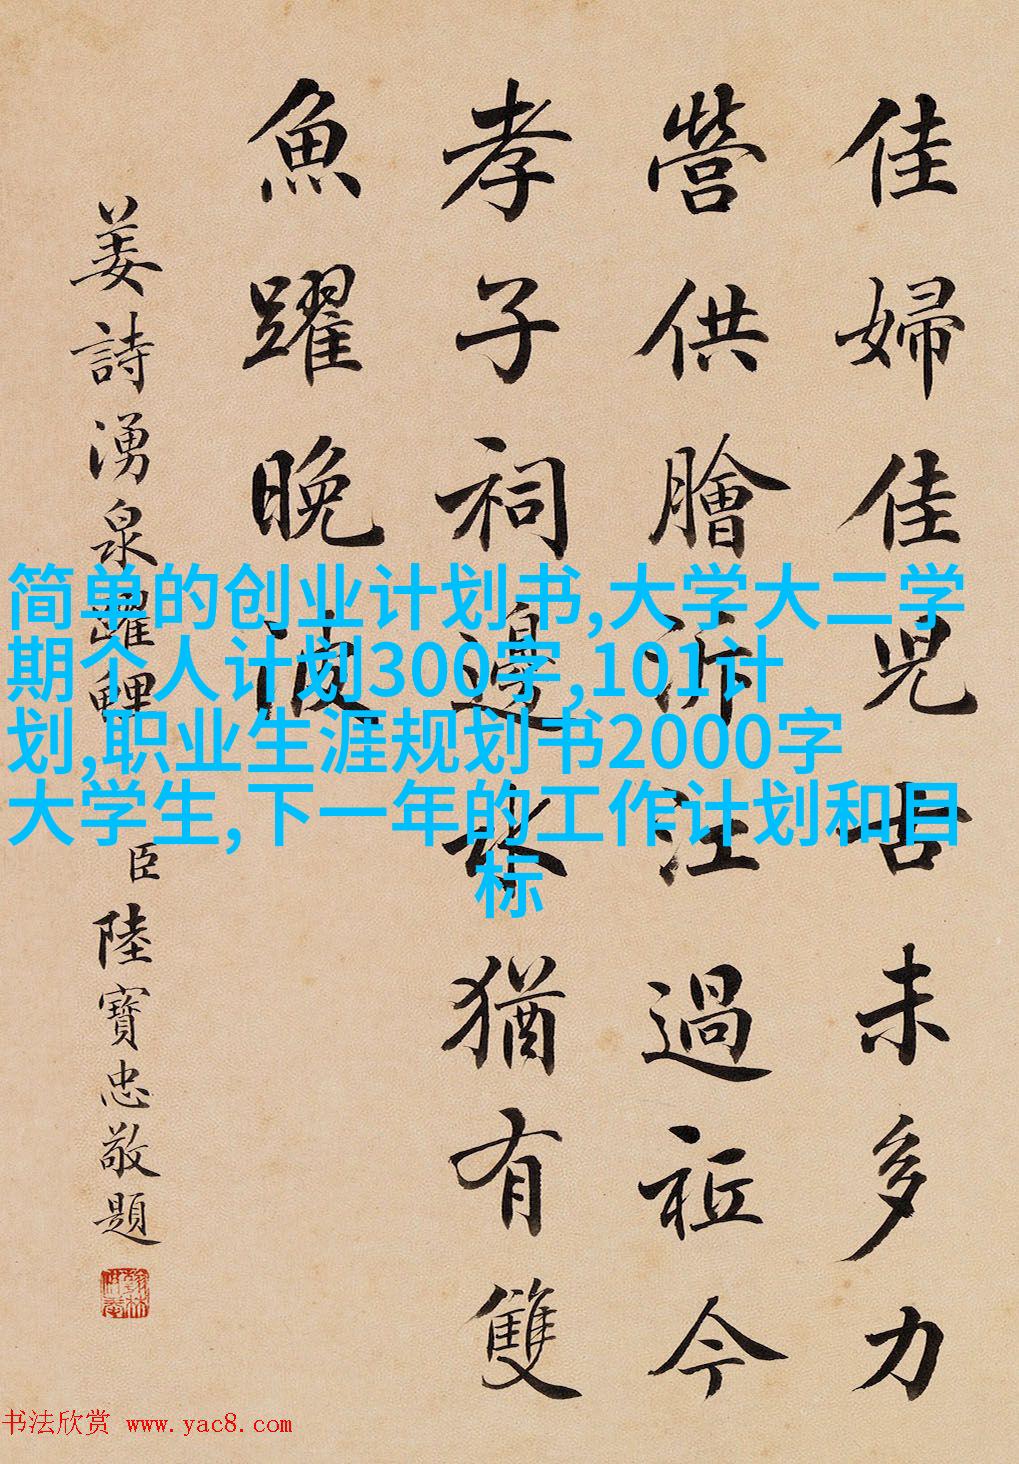 佳婦佳兒古未多力
營供膾泝江過祗今
孝子祠邊水猶有雙
魚躍晚波
姜詩湧泉躍鯉
臣陸寶忠敬題
简单的创业计划书,大学大二学
期个人计划300字,101计
划,职业生涯规划书2000字
大学生,下一年的工作计划和目
标
书法欣赏 www.yac8.com